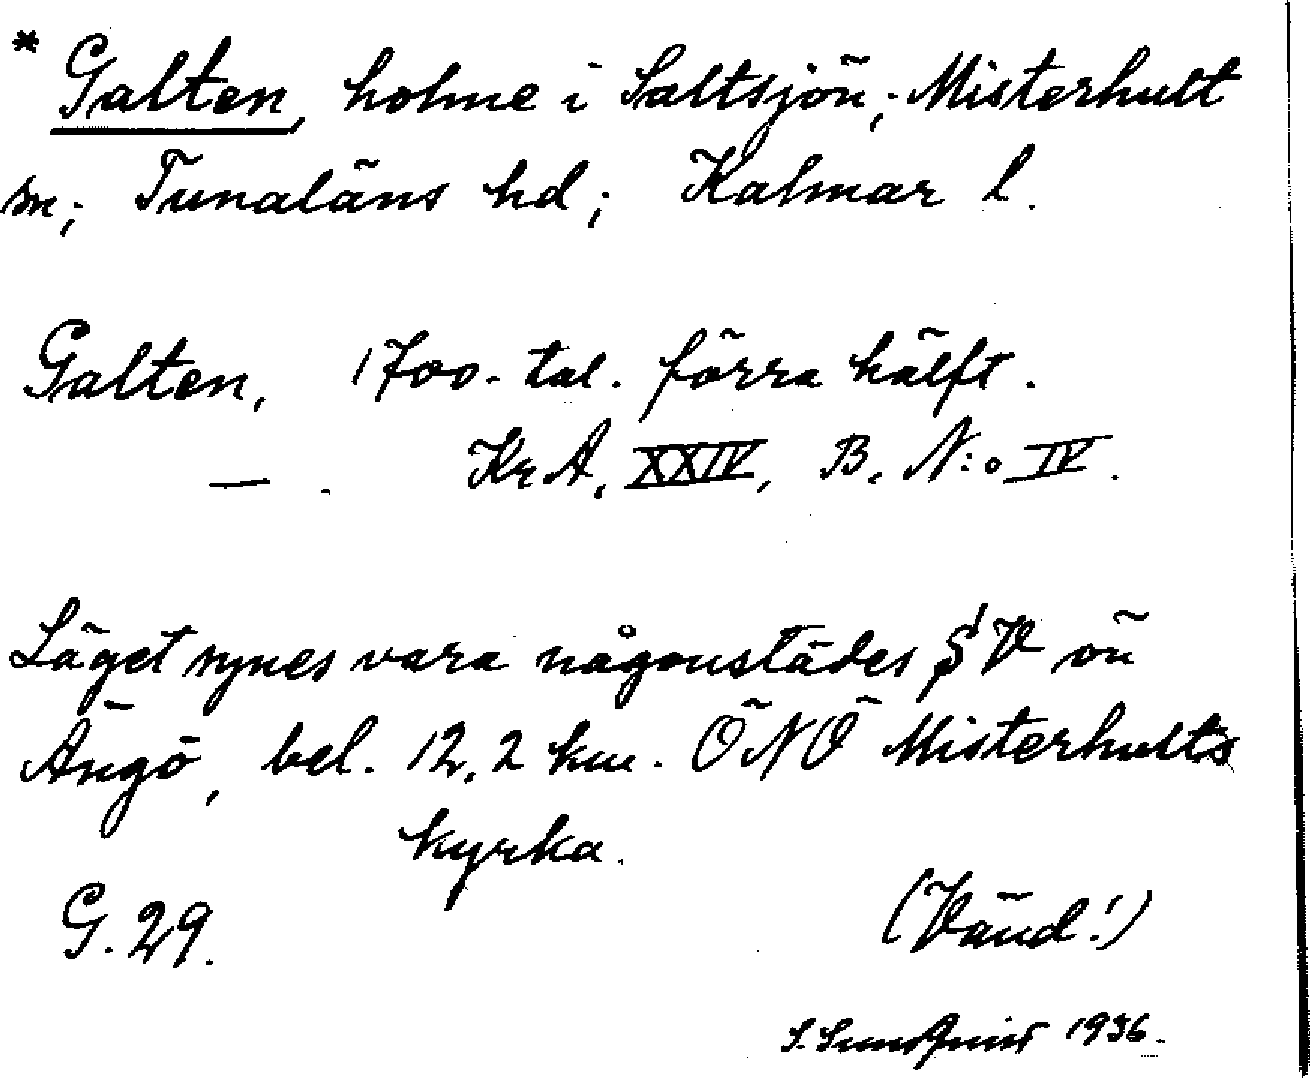 * Galten, holme i Saltsjön; Misterhult
sn; Tunaläns hd; Kalmar l.
Galten, 1700-tal. förra hälft.
— . KrA, XXIV, B. N:o IV.
Läget synes vara någonstädes SV ön
Ängö, bel. 12,2 km. ÖNÖ Misterhults
kyrka.
G. 29. (Vänd!)
S. Sundquist 1936.